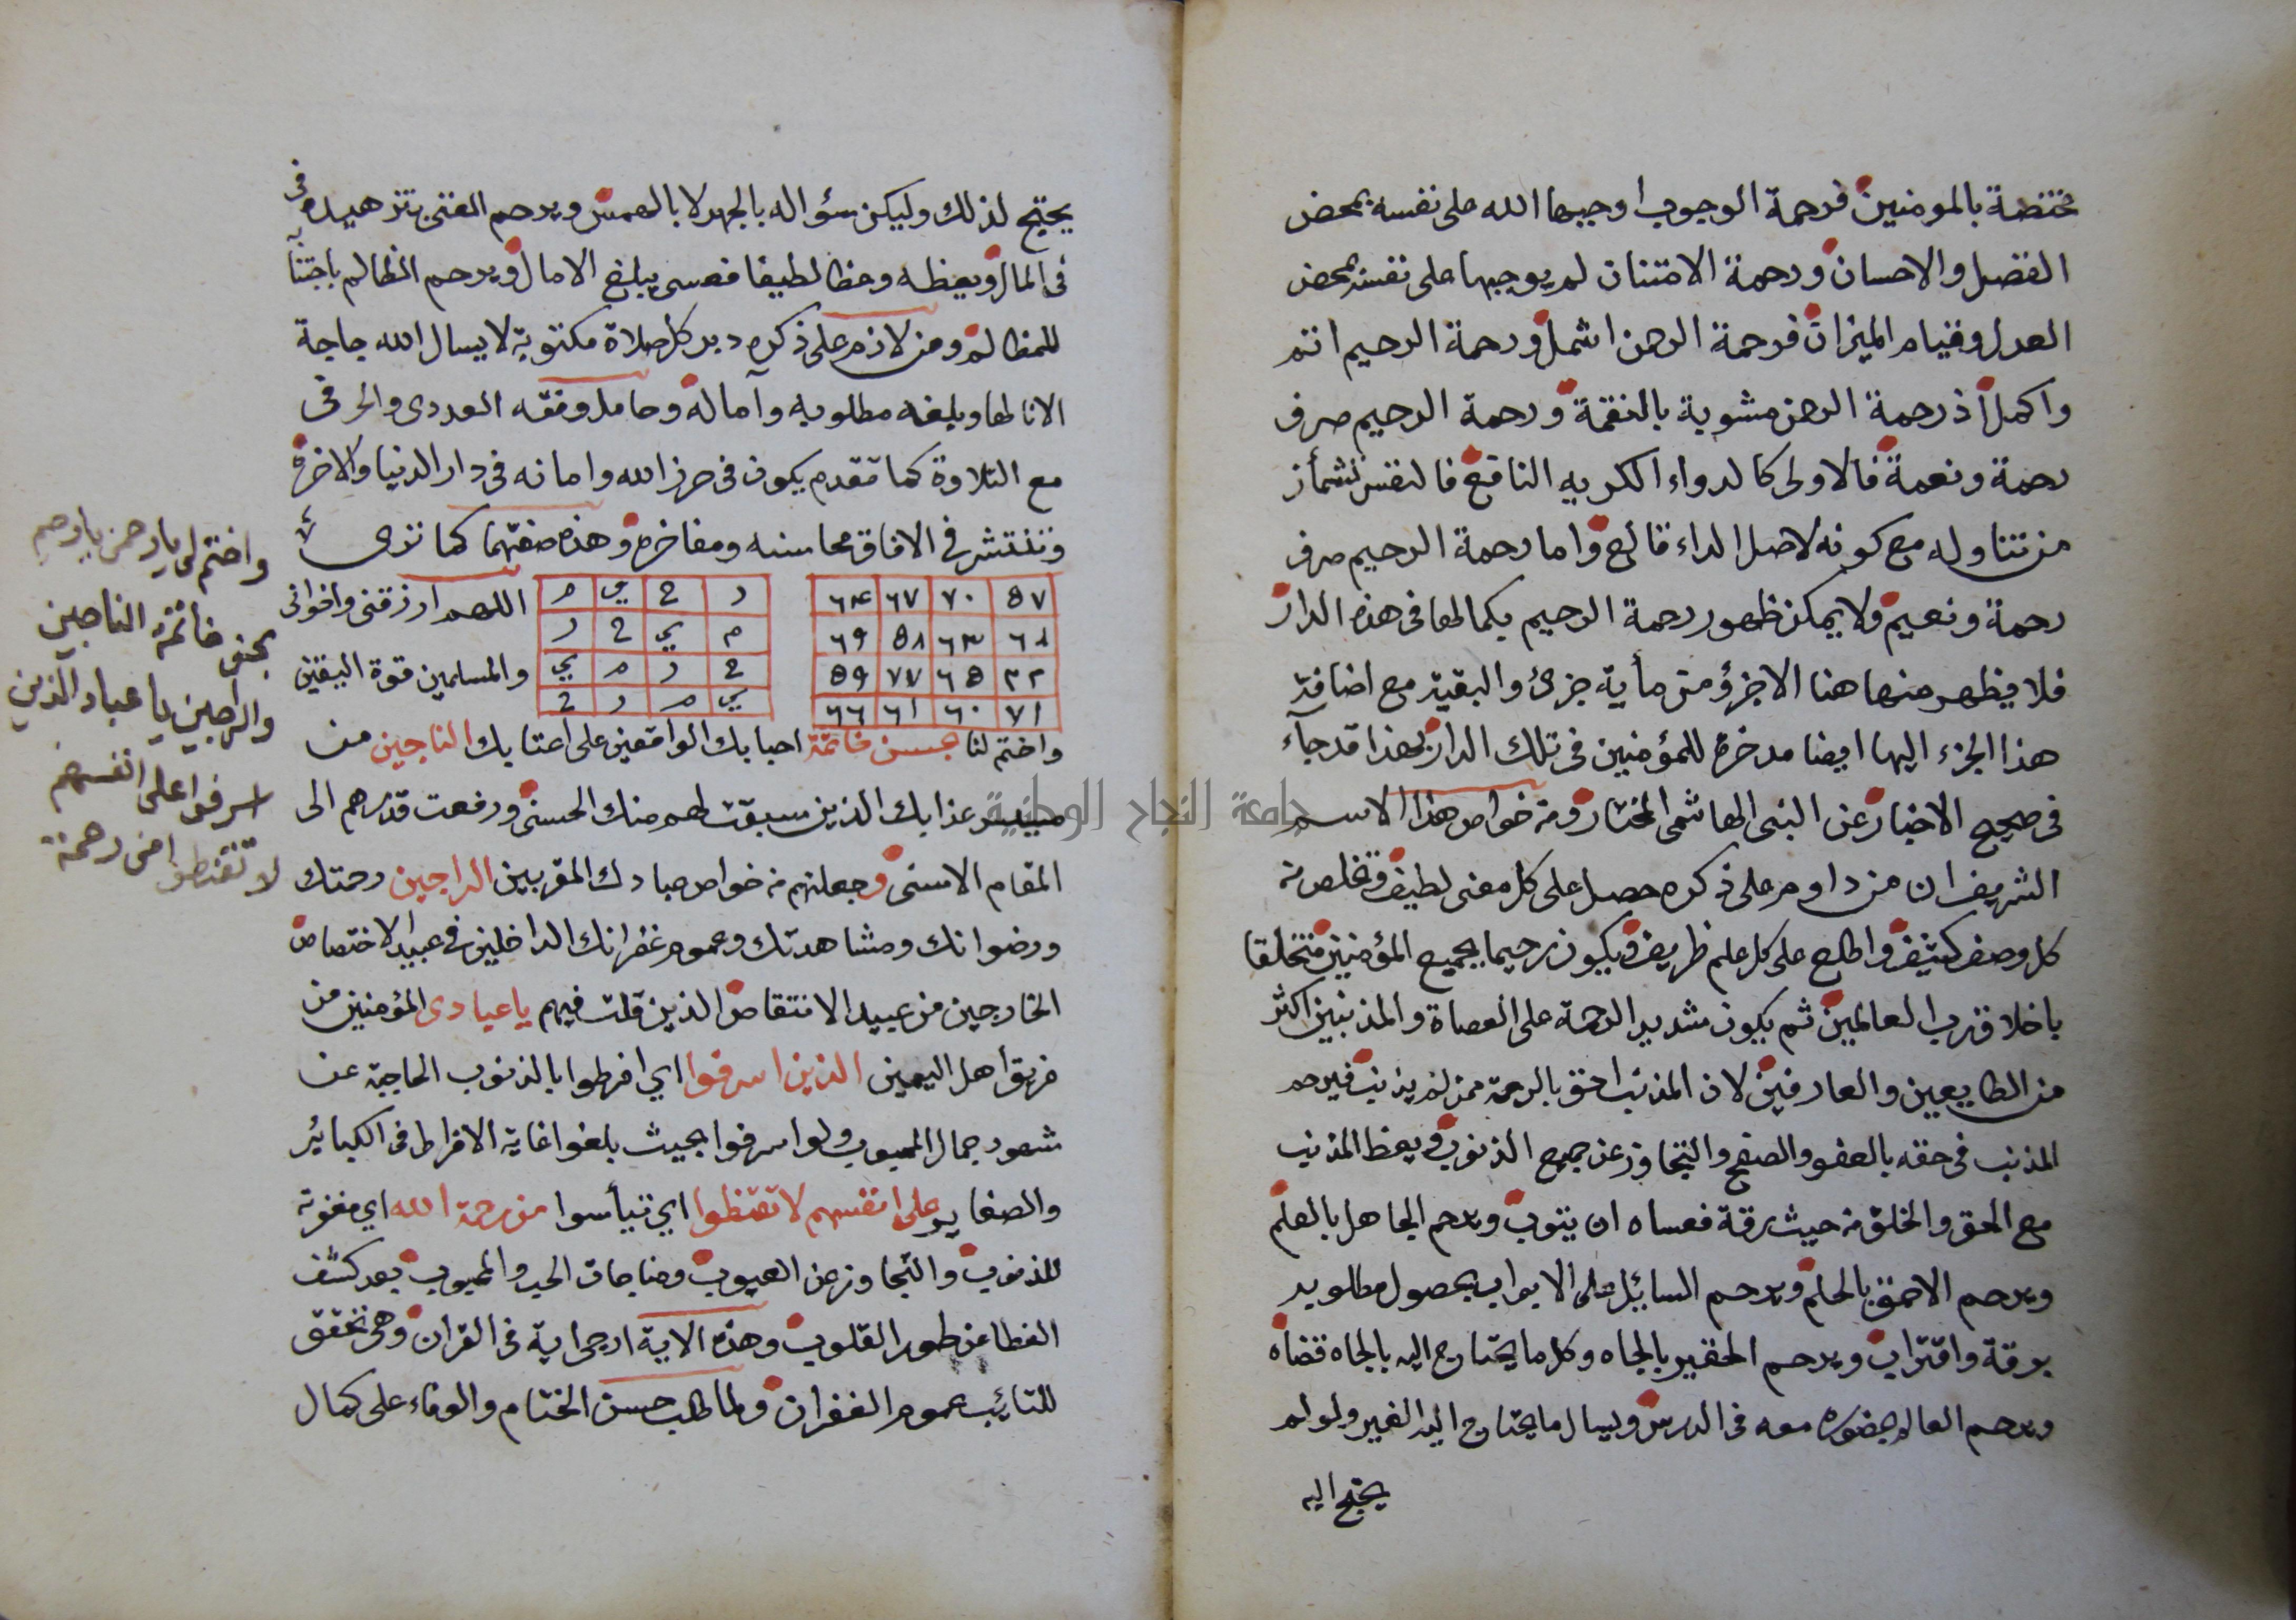 مختصة بالمومنين فرحمة الوجوب اوجبها الله على نفسه بمحض
الفضل والاحسان ورحمة الامتنان لم يوجبها على نفسه بمحض
العدل وقيام الميزان فرحمة الرحمن اشمل ورحمة الرحيم اتم
واكمل اذ رحمة الرحمن مشوبة بالنقمة ورحمة الرحيم صرف
رحمة ونعمة فالاولى كالدواء الكريه النافع فالنفس تشمأز
من تناوله مع كونه لاصل الداء قالع واما رحمة الرحيم صرف
رحمة ونعيم ولا يمكن ظهور رحمة الرحيم بكمالها فى هذه الدار
فلا يظهر منها هنا الا جزؤ من مأية جزئ والبقية مع اضافة
هذا الجزء اليها ايضا مدخرة للمؤمنين فى تلك الدار بهذا قد جآء
فى صحيح الاخبار عن النبى الهاشمى المختار ومن خواص هذا الاسم
الشريف ان من داوم على ذكره حصل على كل معنى لطيف وتخلص من
كل وصف كثيف واطلع على كل علم ظريف ويكون رحيما بجميع المؤمنين متخلقا
باخلاق رب العالمين ثم يكون شديد الرحمة على العصاة والمذنبين اكثر
من الطايعين والعارفين لان المذنب احق بالرحمة ممن لم يذنب فيرحم
المذنب فى حقه بالعفو والصفح والتجاوز عن جميع الذنوب ويعظ المذنب
مع الحق والخلق من حيث رقة فعساه ان يتوب ويرحم الجاهل بالعلم
ويرحم الاحمق بالحلم ويرحم السائل على الابواب بحصول مطلوبه
برقة واقتراب ويرحم الحقير بالجاه وكل ما يحتاج اليه بالجاه قضاه
ويرحم العالم بحضوره معه فى الدرس ويسال ما يحتاج اليه الغير ولو لم
يحتج اليه
يحتج لذلك وليكن سؤاله بالجهر لا بالهمس ويرحم الغنى بتزهيده فى
فى المال ويعظه وعظا لطيفا فعسى يبلغ الامال ويرحم الظالم باجتنابه
للمظالم ومن لازم على ذكره دبر كل صلاة مكتوبة لا يسال الله حاجة
الا نالها ويلغه مطلوبه وآماله وحامل وفقه العددى والحرفى
مع التلاوة كما تقدم يكون فى حرز الله وامانه فى دار الدنيا والاخرة
وتنتشر فى الافاق محاسنه ومفاخره وهذه صفتهما كما ترى
٥٧ ٧٠ ٦٧ ٦٤ ر ح ي م
٦٨ ٦٣ ٥٨ ٦٩ م ي ح ر
٦٥ ٥٩ ح ر م ي
٧١ ٦٠ ٦١ ٦٦ ي م ر ح
اللهم ارزقنى واخوانى
والمسلمين قوة اليقين
واختم لنا بحسن خاتمة احبابك الواقفين على اعتابك الناجين من
عذابك الذين سبقت لهم منك الحسنى ورفعت قدرهم الى
المقام الاسنى وجعلتهم من خواص عبادك المقربين الراجين رحمتك
ورضوانك ومشاهدتك وعموم غفرانك الداخلين فى عبيد الاختصاص
الخارجين من عبيد الانتقاص الذين قلت فيهم يا عبادى المؤمنين من
فريق أهل اليمين الذين اسرفوا اي افرطوا بالذنوب الحاجبة عن
شهود جمال المحبوب ولو اسرفوا بحيث بلغوا غاية الافراط فى الكبائر
والصغاير على انفسهم لا تقنطوا اي تيأسوا من رحمة الله اي مغفرته
للذنوب والتجاوز عن العيوب ومناجات الحب والمحبوب بعد كشف
الغطا عن طور القلوب وهذه الاية ارجى اية فى القران وهى تحقق
للتائب عموم الغفران ولما طلب حسن الختام والوفاء على كمال
واختم لى يا رحمن يا رحيم
بحسن خاتمة الناجين
والراجين يا عباد الذين
اسرفوا على انفسهم
لا تقنطوا من رحمة
جامعة النجاح الوطنية